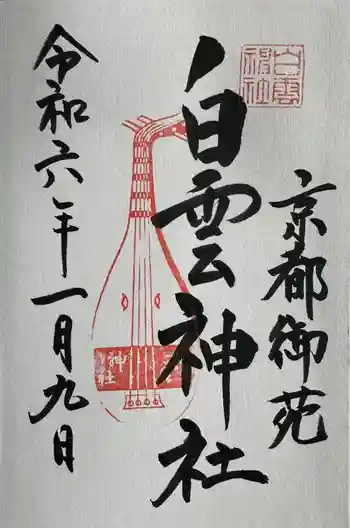 京都御苑
白雲神社
白雲神社
令和六年一月九日
神社